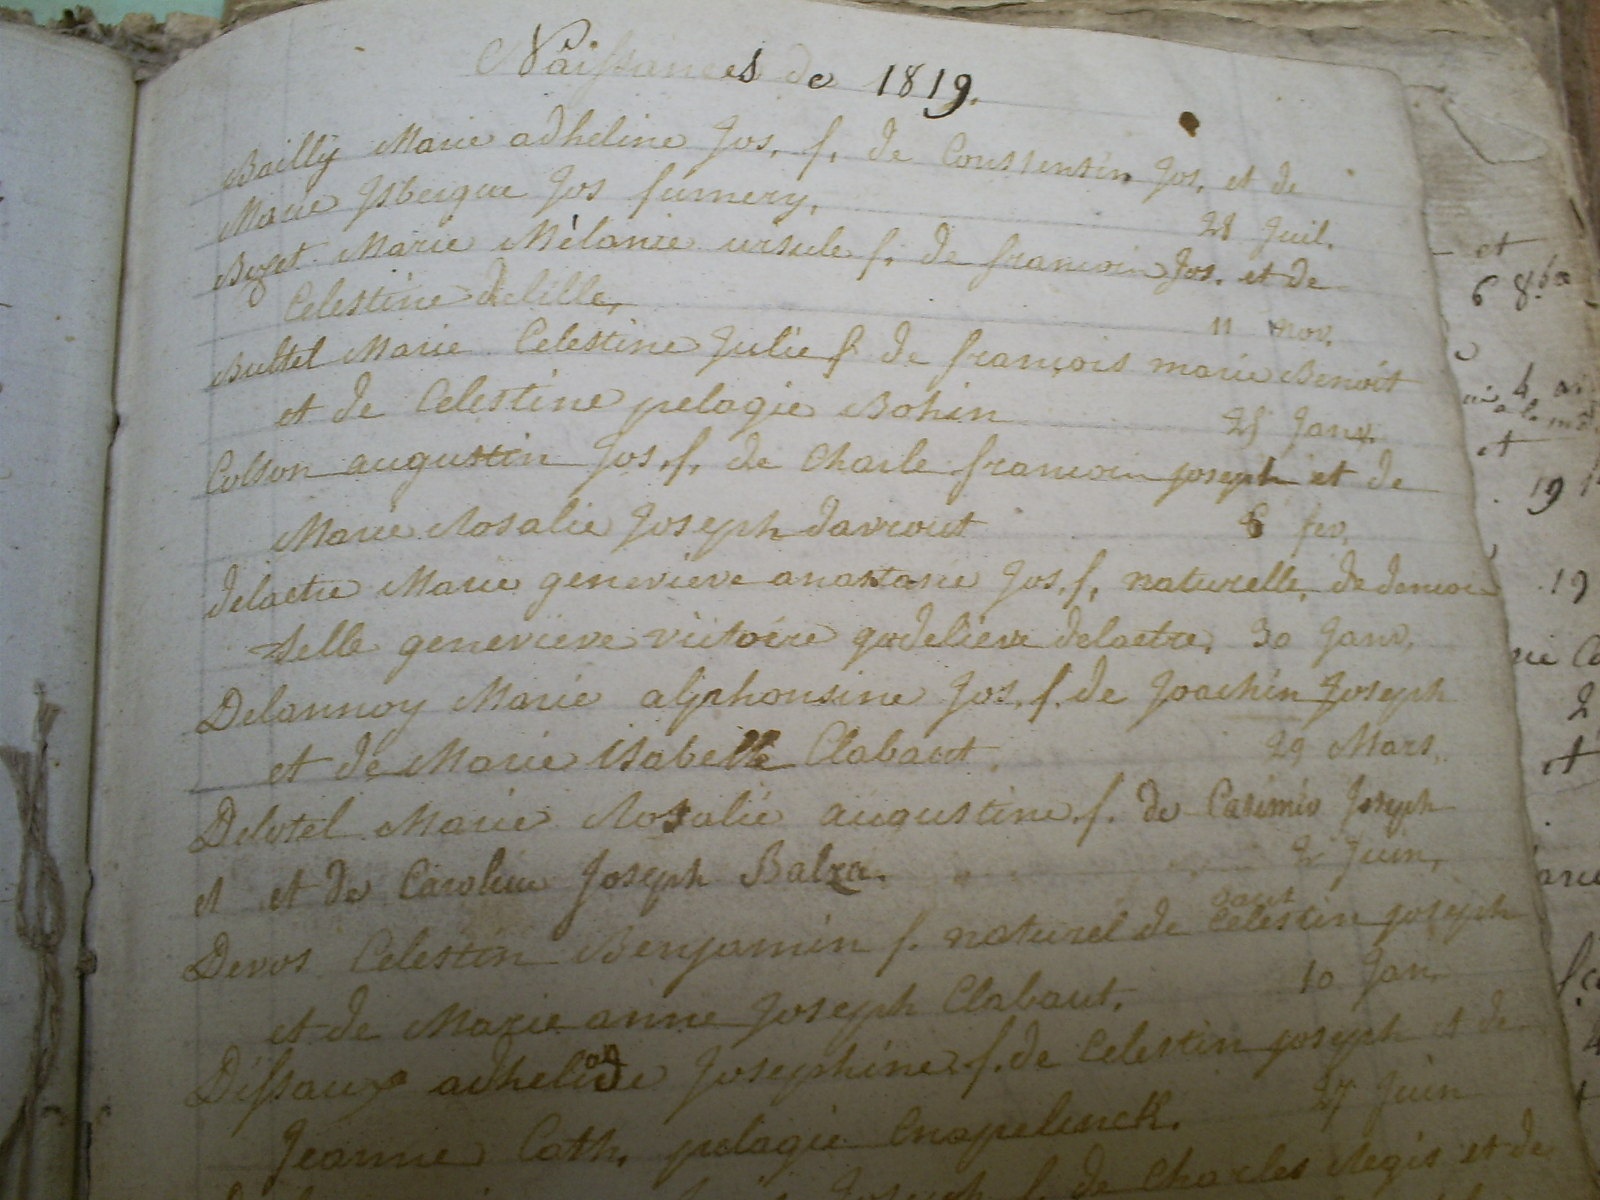 Naissances de 1819.
Bailly Marie adheline Jos. f. de Constentin Jos. et de
Marie Isbergue Jos fumery. 28 Juil.
Bozet Marie Mélanie ursule f. de francoin Jos. et de
Celestine delille, 11 nov.
Bultel Marie Celestine Julie f de françois marie Benoit
et de Celestine pelagie Bohin 25 Janv.
Colson augustin Jos. f. de Charle francoin joseph et de
Marie Rosalie Joseph davrout 6 fev.
delaetre Marie genevieve anastasie Jos. f. naturelle, de demoi
selle genevieve victoire godelieve delaetre, 30 Janv.
Delannoy Marie alphonsine Jos. f. de Joachin Joseph
et de Marie Isabelle Clabaut. 29 Mars,
Delotel Marie Rosalie augustine f. de Casimir Joseph
et et de Caroline Joseph Balza. 2 Juin,
Devos Celestin Benjamin f. naturel de Celestin joseph
et de Marie anne Joseph Clabaut. 10 Jan.
Dissaux adhelide Josephine f. de Celestin joseph et de
Jeanne Cath. pelagie Cnapelinck. 27 Juin
Joseph f. de Charles Regis et de
et
6 8bre
et
19
19
2
et